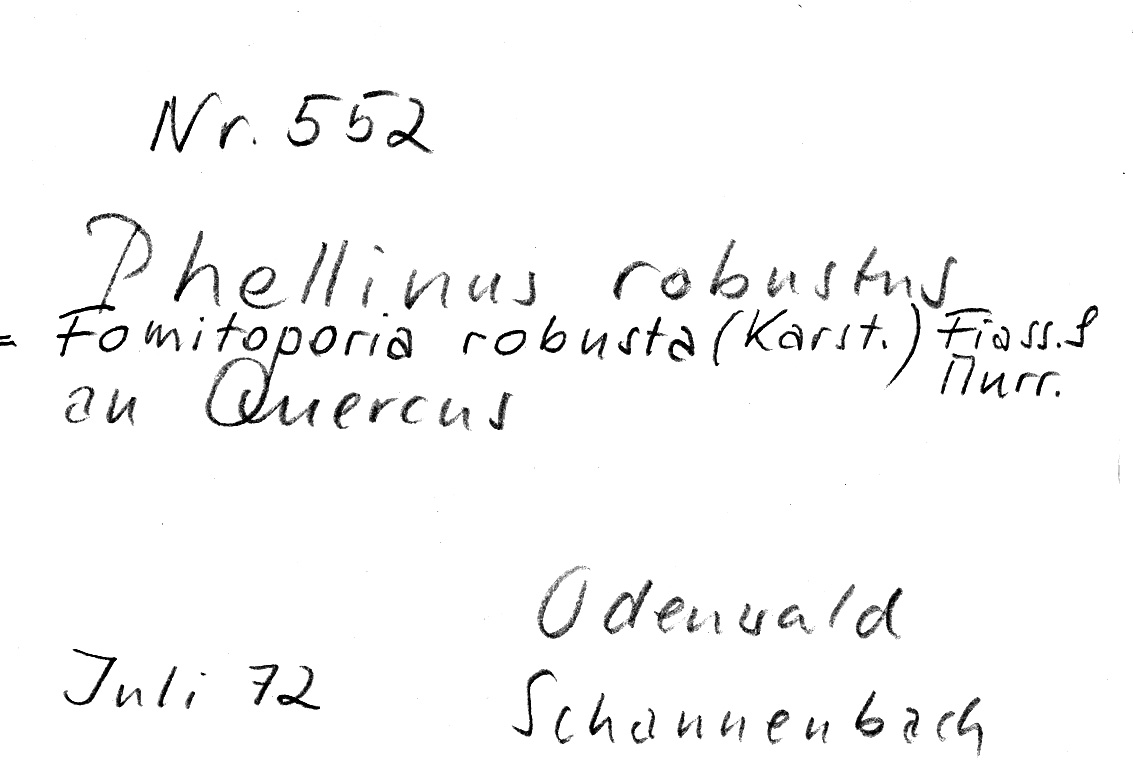 Nr. 552
Phellinus robustus
= Fomitoporia robusta (Karst.) Fiass. &
Murr.
an Quercus
Odenwald
Juli 72
Schannenbach